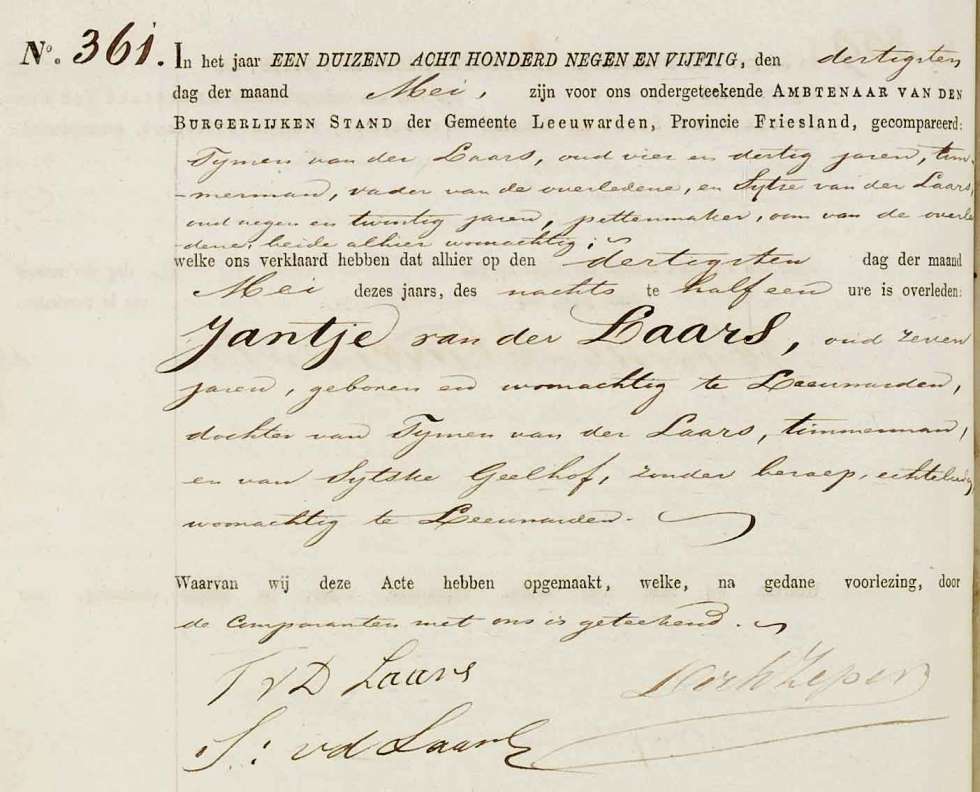 No. 361. In het jaar EEN DUIZEND ACHT HONDERD NEGEN EN VIJFTIG, den dertigsten
dag der maand Mei, zijn voor ons ondergeteekende AMBTENAAR VAN DEN
BURGERLIJKEN STAND der Gemeente Leeuwarden, Provincie Friesland, gecompareerd:
Tymen van der Laars, oud vier en dertig jaren, tim-
-merman, vader van de overledene, en Sytse van der Laars,
oud negen en twintig jaren, pettenmaker, oom van de overle
-dene, beide alhier woonachtig;
welke ons verklaard hebben dat alhier op den dertigsten dag der maand
Mei dezes jaars, des nachts te half een ure is overleden:
Jantje van der Laars, oud zeven
jaren, geboren en woonachtig te Leeuwarden,
dochter van Tymen van der Laars, timmerman,
en van Sytske Geelhof, zonder beroep, echtelieden
woonachtig te Leeuwarden.
Waarvan wij deze Acte hebben opgemaakt, welke, na gedane voorlezing, door
de Comparanten met ons is geteekend.
T v D Laars
S: vd Laars